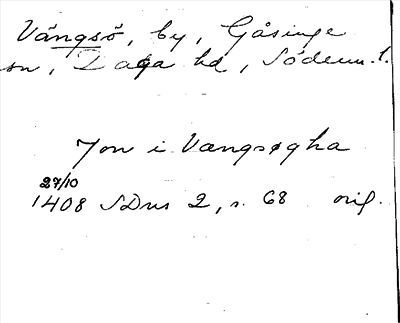 Vängsö, by, Gåsinge
sn, Daga hd, Söderm. l.
Jon i Vængsøgha
27/10
1408 SDns 2, s. 68 orig.